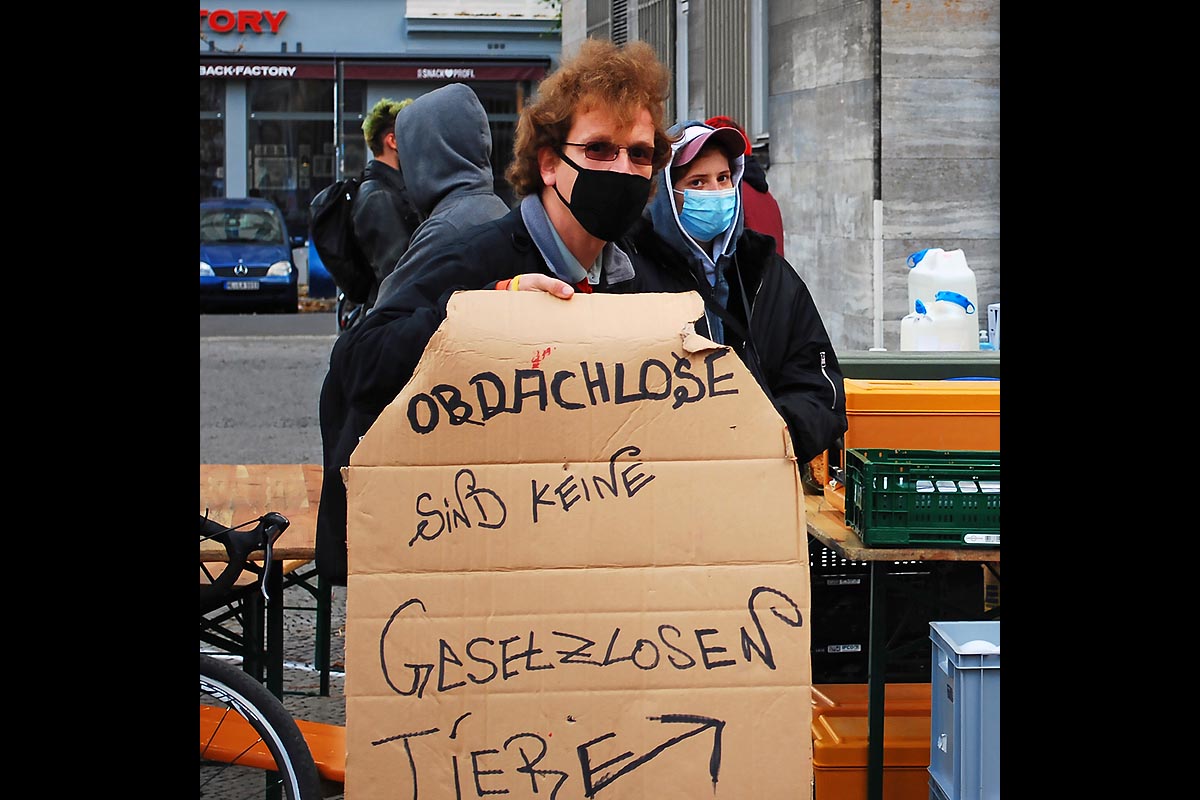 TORY
BACK-FACTORY
SNACK PROFI.
OBDACHLOSE
SIND KEINE
GESETZLOSEN
TIERE